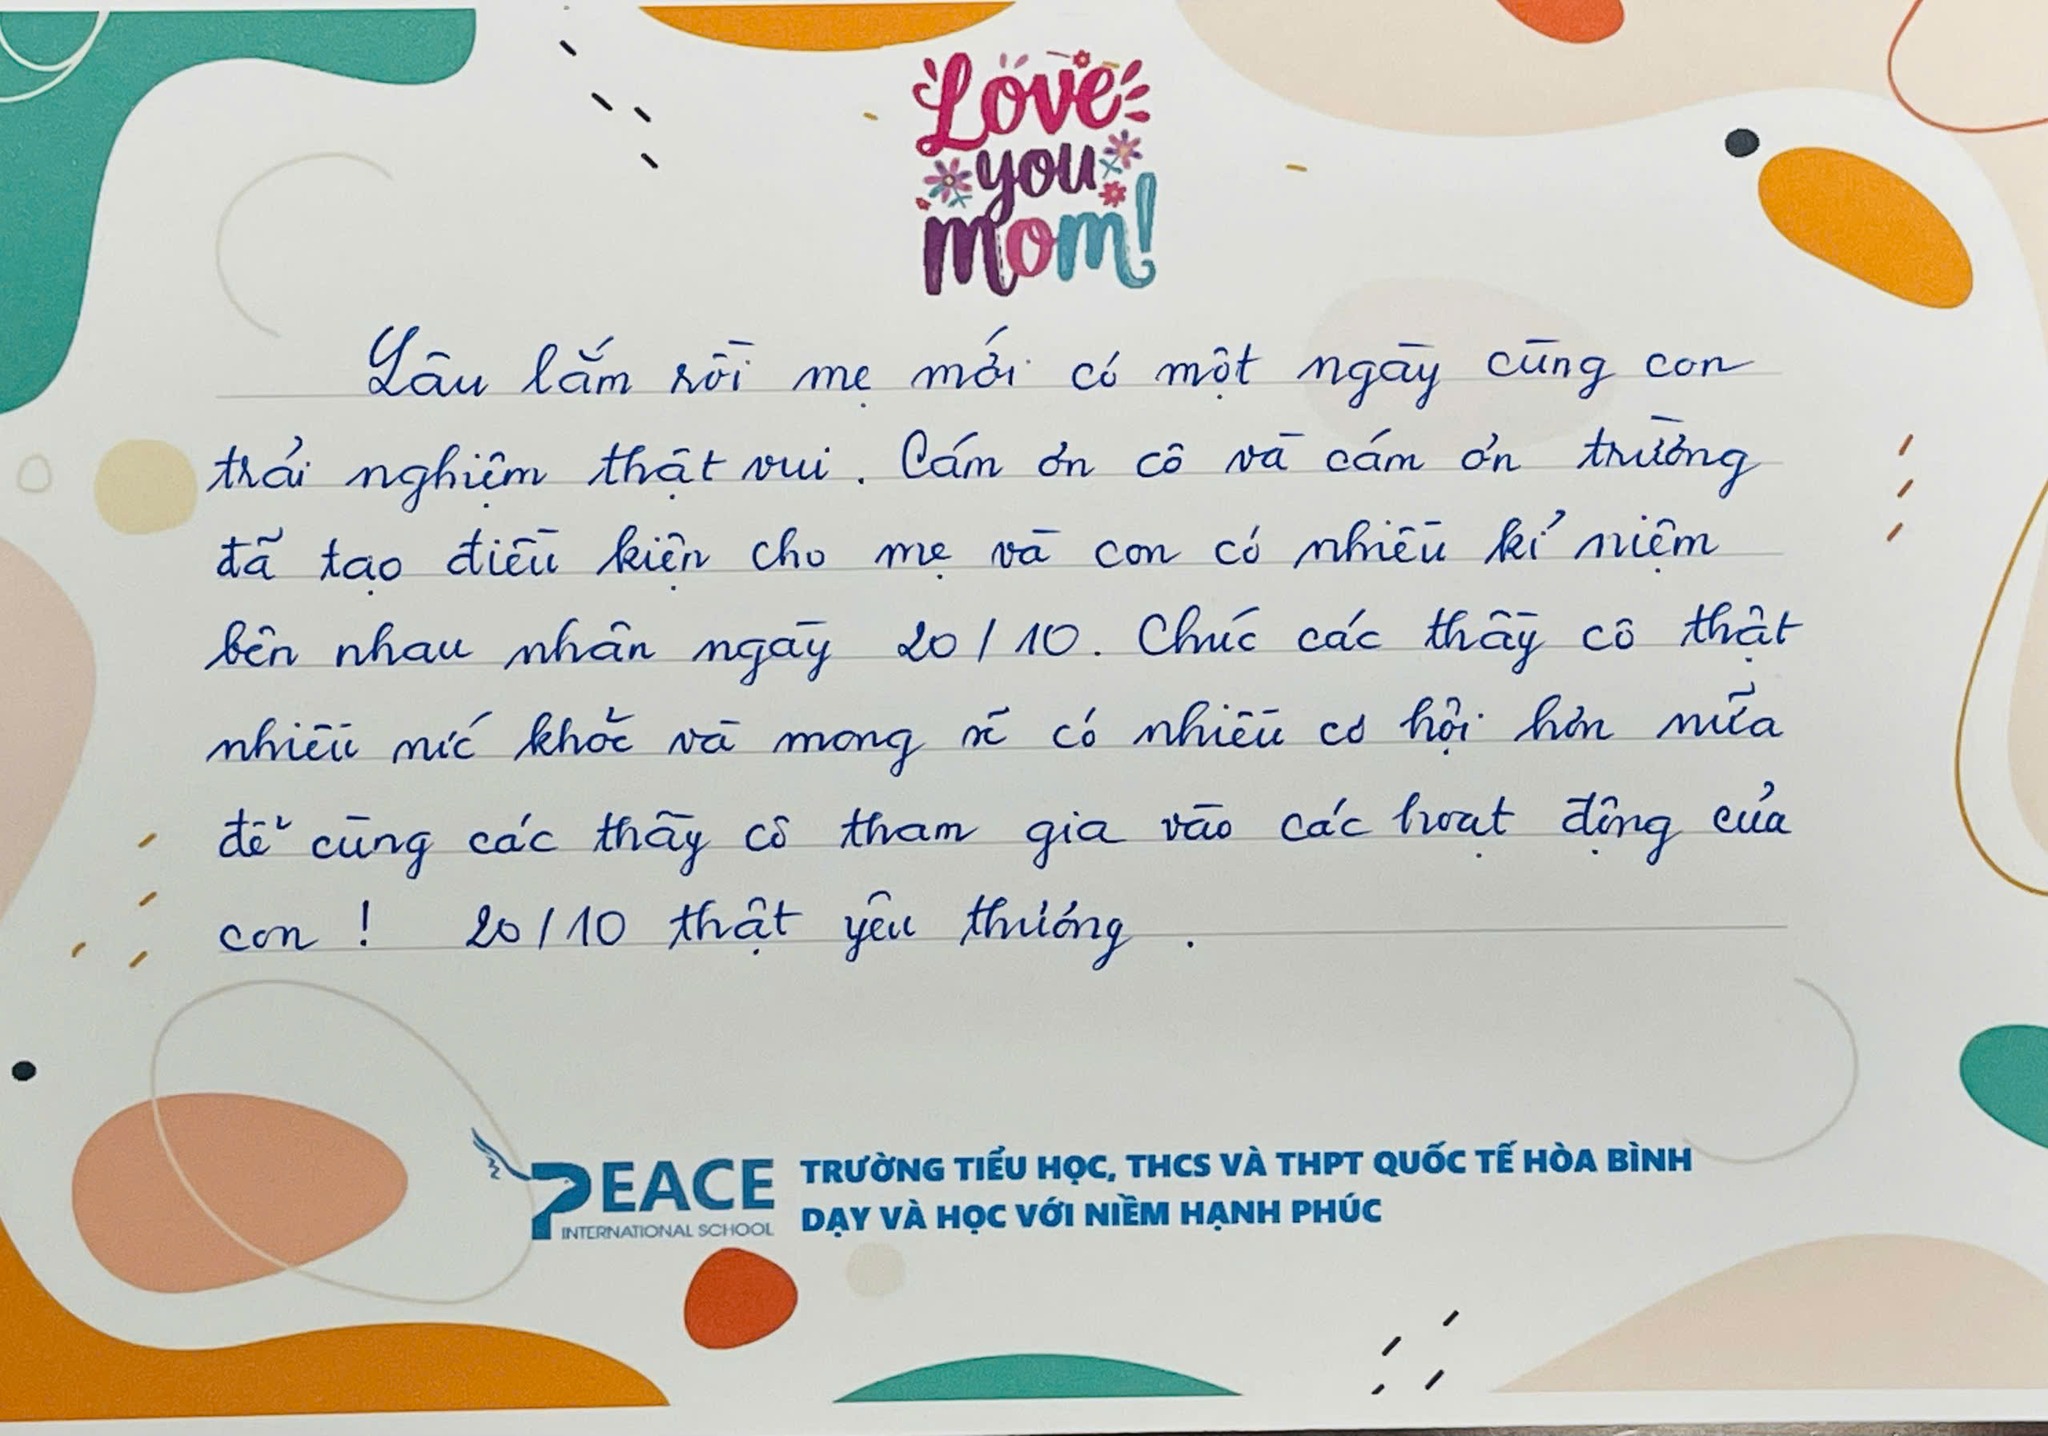 Love
you
mom!
Lâu lắm rồi mẹ mới có một ngày cùng con
trải nghiệm thật vui. Cám ơn cô và cám ơn trường
đã tạo điều kiện cho mẹ và con có nhiều kỉ niệm
bên nhau nhân ngày 20/10. Chúc các thầy cô thật
nhiều sức khỏe và mong sẽ có nhiều cơ hội hơn nữa
để cùng các thầy cô tham gia vào các hoạt động của
con! 20/10 thật yêu thương.
PEACE
INTERNATIONAL SCHOOL
TRƯỜNG TIỂU HỌC, THCS VÀ THPT QUỐC TẾ HÒA BÌNH
DẠY VÀ HỌC VỚI NIỀM HẠNH PHÚC